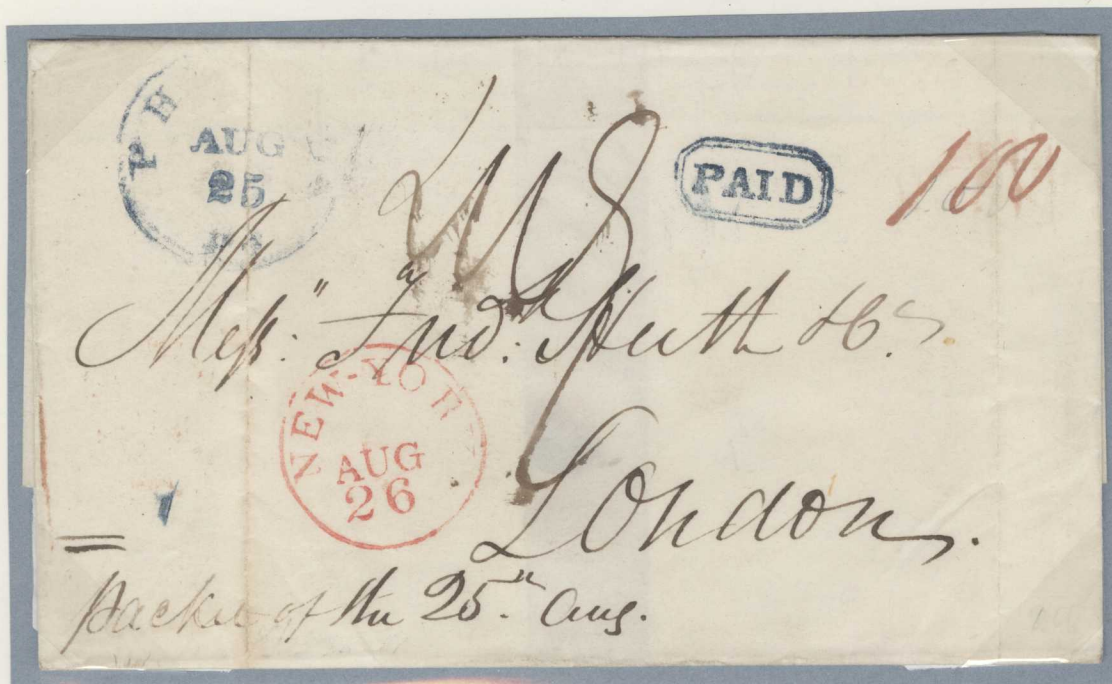 PH
AUG
25
Pa
PAID
100
Mess: Fred: Huth &Co.
NEW-YOR
AUG
26
London.
packet of the 25th Aug.